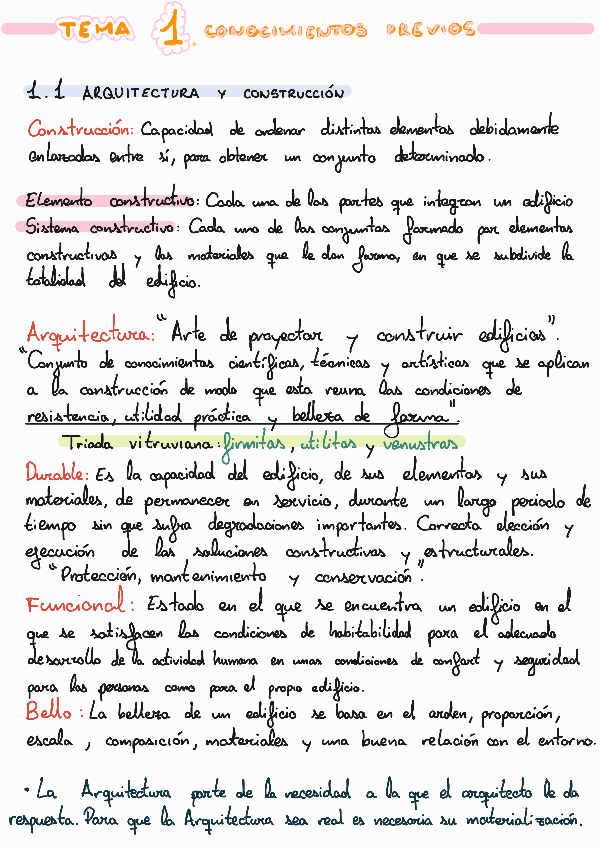 TEMA 1. CONOCIMIENTOS PREVIOS
1.1 ARQUITECTURA Y CONSTRUCCIÓN
Construcción: Capacidad de ordenar distintos elementos debidamente
enlazados entre sí, para obtener un conjunto determinado.
Elemento constructivo: Cada una de las partes que integran un edificio
Sistema constructivo: Cada uno de los conjuntos formado por elementos
constructivos y los materiales que le dan forma, en que se subdivide la
totalidad del edificio.
Arquitectura: "Arte de proyectar y construir edificios".
"Conjunto de conocimientos científicos, técnicos y artísticos que se aplican
a la construcción de modo que esta reuna las condiciones de
resistencia, utilidad práctica y belleza de forma".
Triada vitruviana: firmitas, utilitas y venustras
Durable: Es la capacidad del edificio, de sus elementos y sus
materiales, de permanecer en servicio, durante un largo periodo de
tiempo sin que sufra degradaciones importantes. Correcta elección y
ejecución de las soluciones constructivas y estructurales.
"Protección, mantenimiento y conservación".
Funcional: Estado en el que se encuentra un edificio en el
que se satisfacen las condiciones de habitabilidad para el adecuado
desarrollo de la actividad humana en unas condiciones de confort y seguridad
para las personas como para el propio edificio.
Bello: La belleza de un edificio se basa en el orden, proporción,
escala, composición, materiales y una buena relación con el entorno.
• La Arquitectura parte de la necesidad a la que el arquitecto le da
respuesta. Para que la Arquitectura sea real es necesaria su materialización.